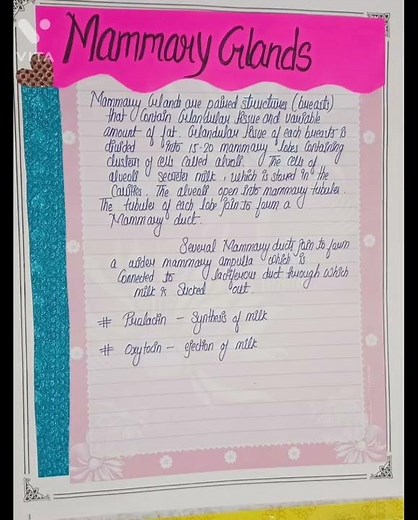 VITA
Mammary Glands
Mammary Glands are paired structures (breasts)
that contain Glandular tissue and variable
amount of fat. Glandular tissue of each breasts is
divided into 15-20 mammary lobes containing
clusters of cells called alveoli. The cells of
alveoli secretes milk, which is stored in the
Cavities. The alveoli open into mammary tubules.
The tubules of each lobe join to form a
Mammary duct.
Several Mammary ducts join to form
a wider mammary ampulla which is
Connected to lactiferous duct through which
milk is Sucked out.
# Prolactin - Synthesis of milk
# Oxytocin - ejection of milk